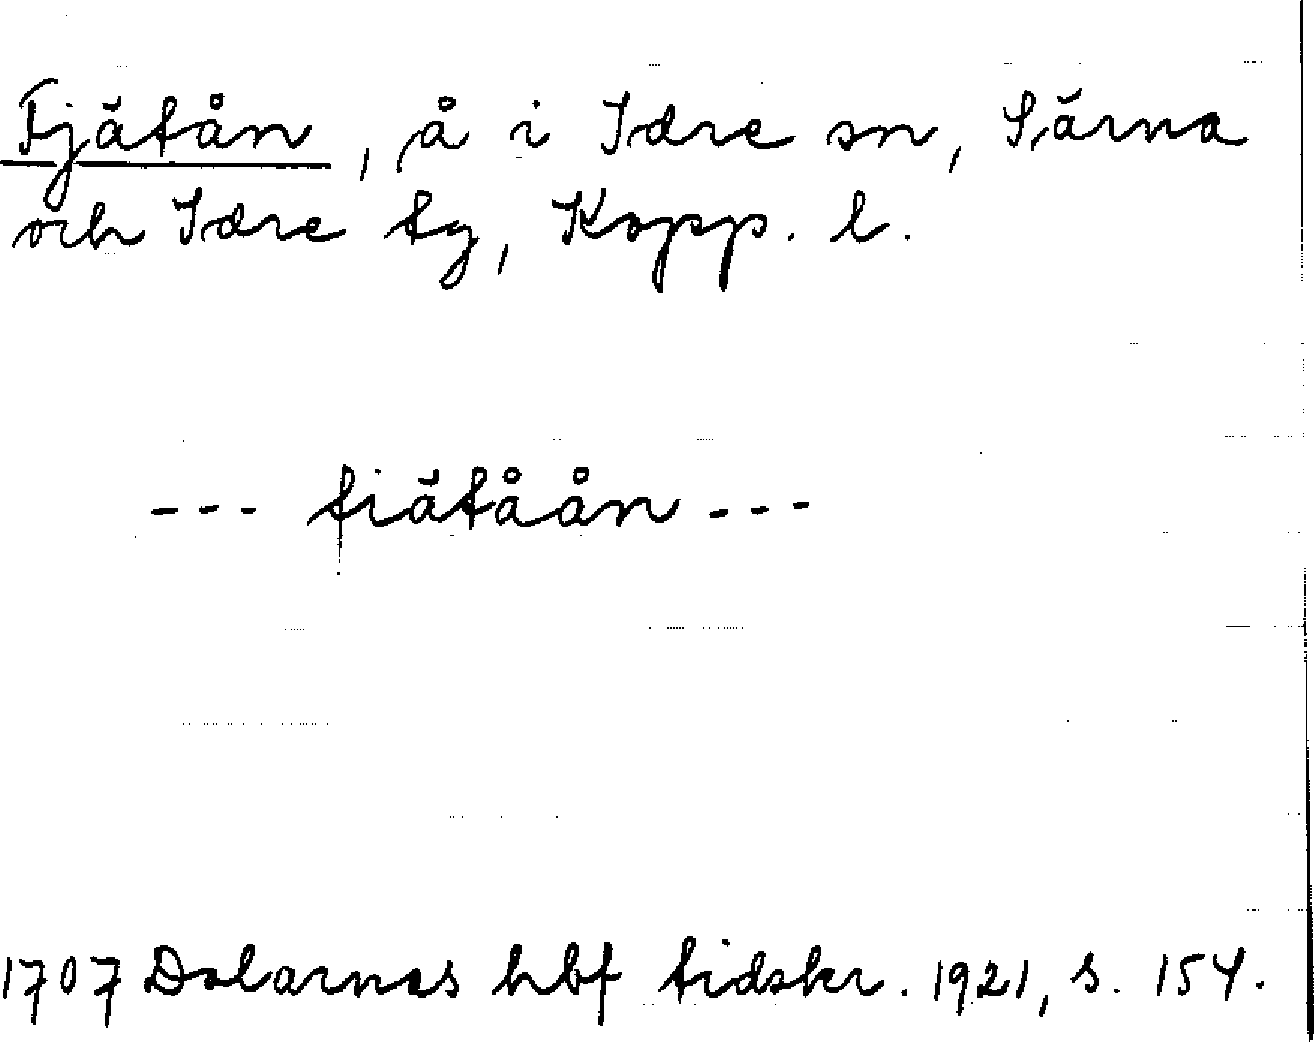 Fjätån, å i Idre sn, Särna
och Idre tg, Kopp. l.
--- fiätåån ---
1707 Dalarnas hbf tidskr. 1921, s. 154.